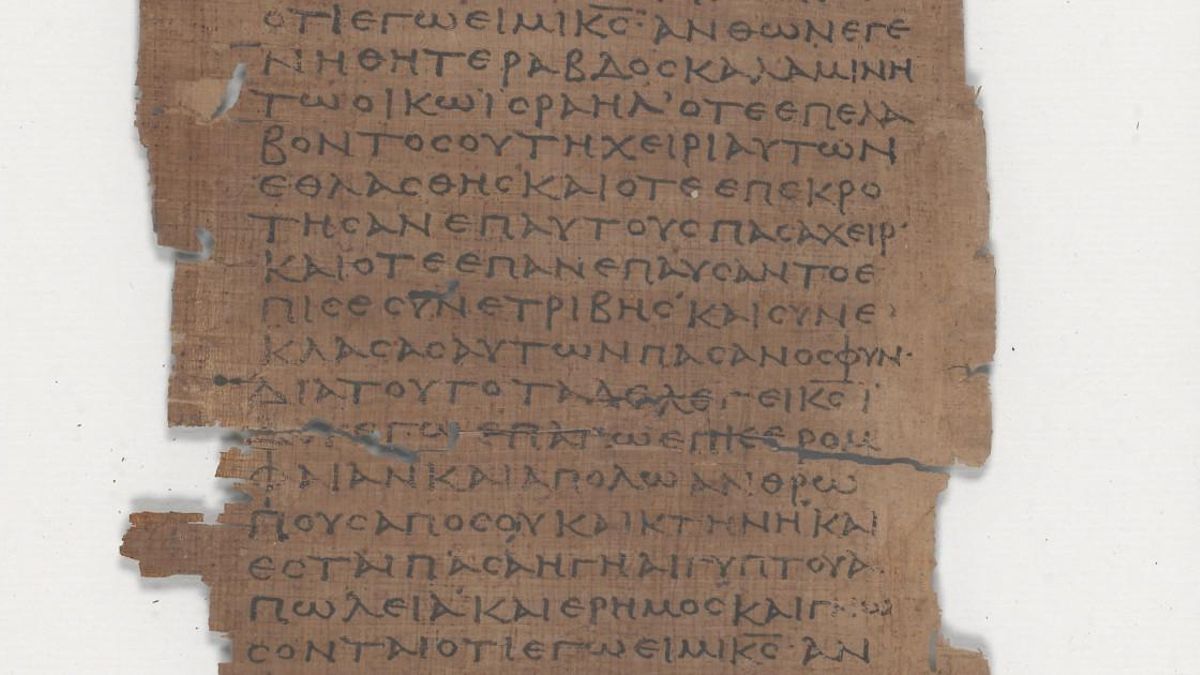 ΟΤΙΕΓΩΕΙΜΙΚ̅Ϲ̅·ΑΝΘΩΝΕΓΕ
ΝΗΘΗΤΕΡΑΒΔΟϹΚΑΛΑΜΙΝΗ
ΤΩΟΙΚΩΙϹΡΑΗΛ'ΟΤΕΕΠΕΛΑ
ΒΟΝΤΟϹΟΥΤΗΧΕΙΡΙΑΥΤΩΝ
ΕΘΛΑϹΘΗϹΚΑΙΟΤΕΕΠΕΚΡΟ
ΤΗϹΑΝΕΠΑΥΤΟΥϹΠΑϹΑΧΕΙΡ·
ΚΑΙΟΤΕΕΠΑΝΕΠΑΥϹΑΝΤΟΕ
ΠΙϹΕϹΥΝΕΤΡΙΒΗϹ'ΚΑΙϹΥΝΕ
ΚΛΑϹΑϹΑΥΤΩΝΠΑϹΑΝΟϹΦΥΝ·
ΔΙΑΤΟΥΤΟΤΑΔΕΛΕΓΕΙΚ̅Ϲ̅Ϊ
ΕΓΩΕΠΑΓΩΕΠΙϹΕΡΟΜ
ΦΑΙΑΝΚΑΙΑΠΟΛΩΑΝΘΡΩ
ΠΟΥϹΑΠΟϹΟΥΚΑΙΚΤΗΝΗΚΑΙ
ΕϹΤΑΙΠΑϹΑΗΓΗΑΙΓΥΠΤΟΥΑ
ΠΩΛΕΙΑ'ΚΑΙΕΡΗΜΟϹΚΑΙΓΝΩ
ϹΟΝΤΑΙΟΤΙΕΓΩΕΙΜΙΚ̅Ϲ̅·ΑΝ